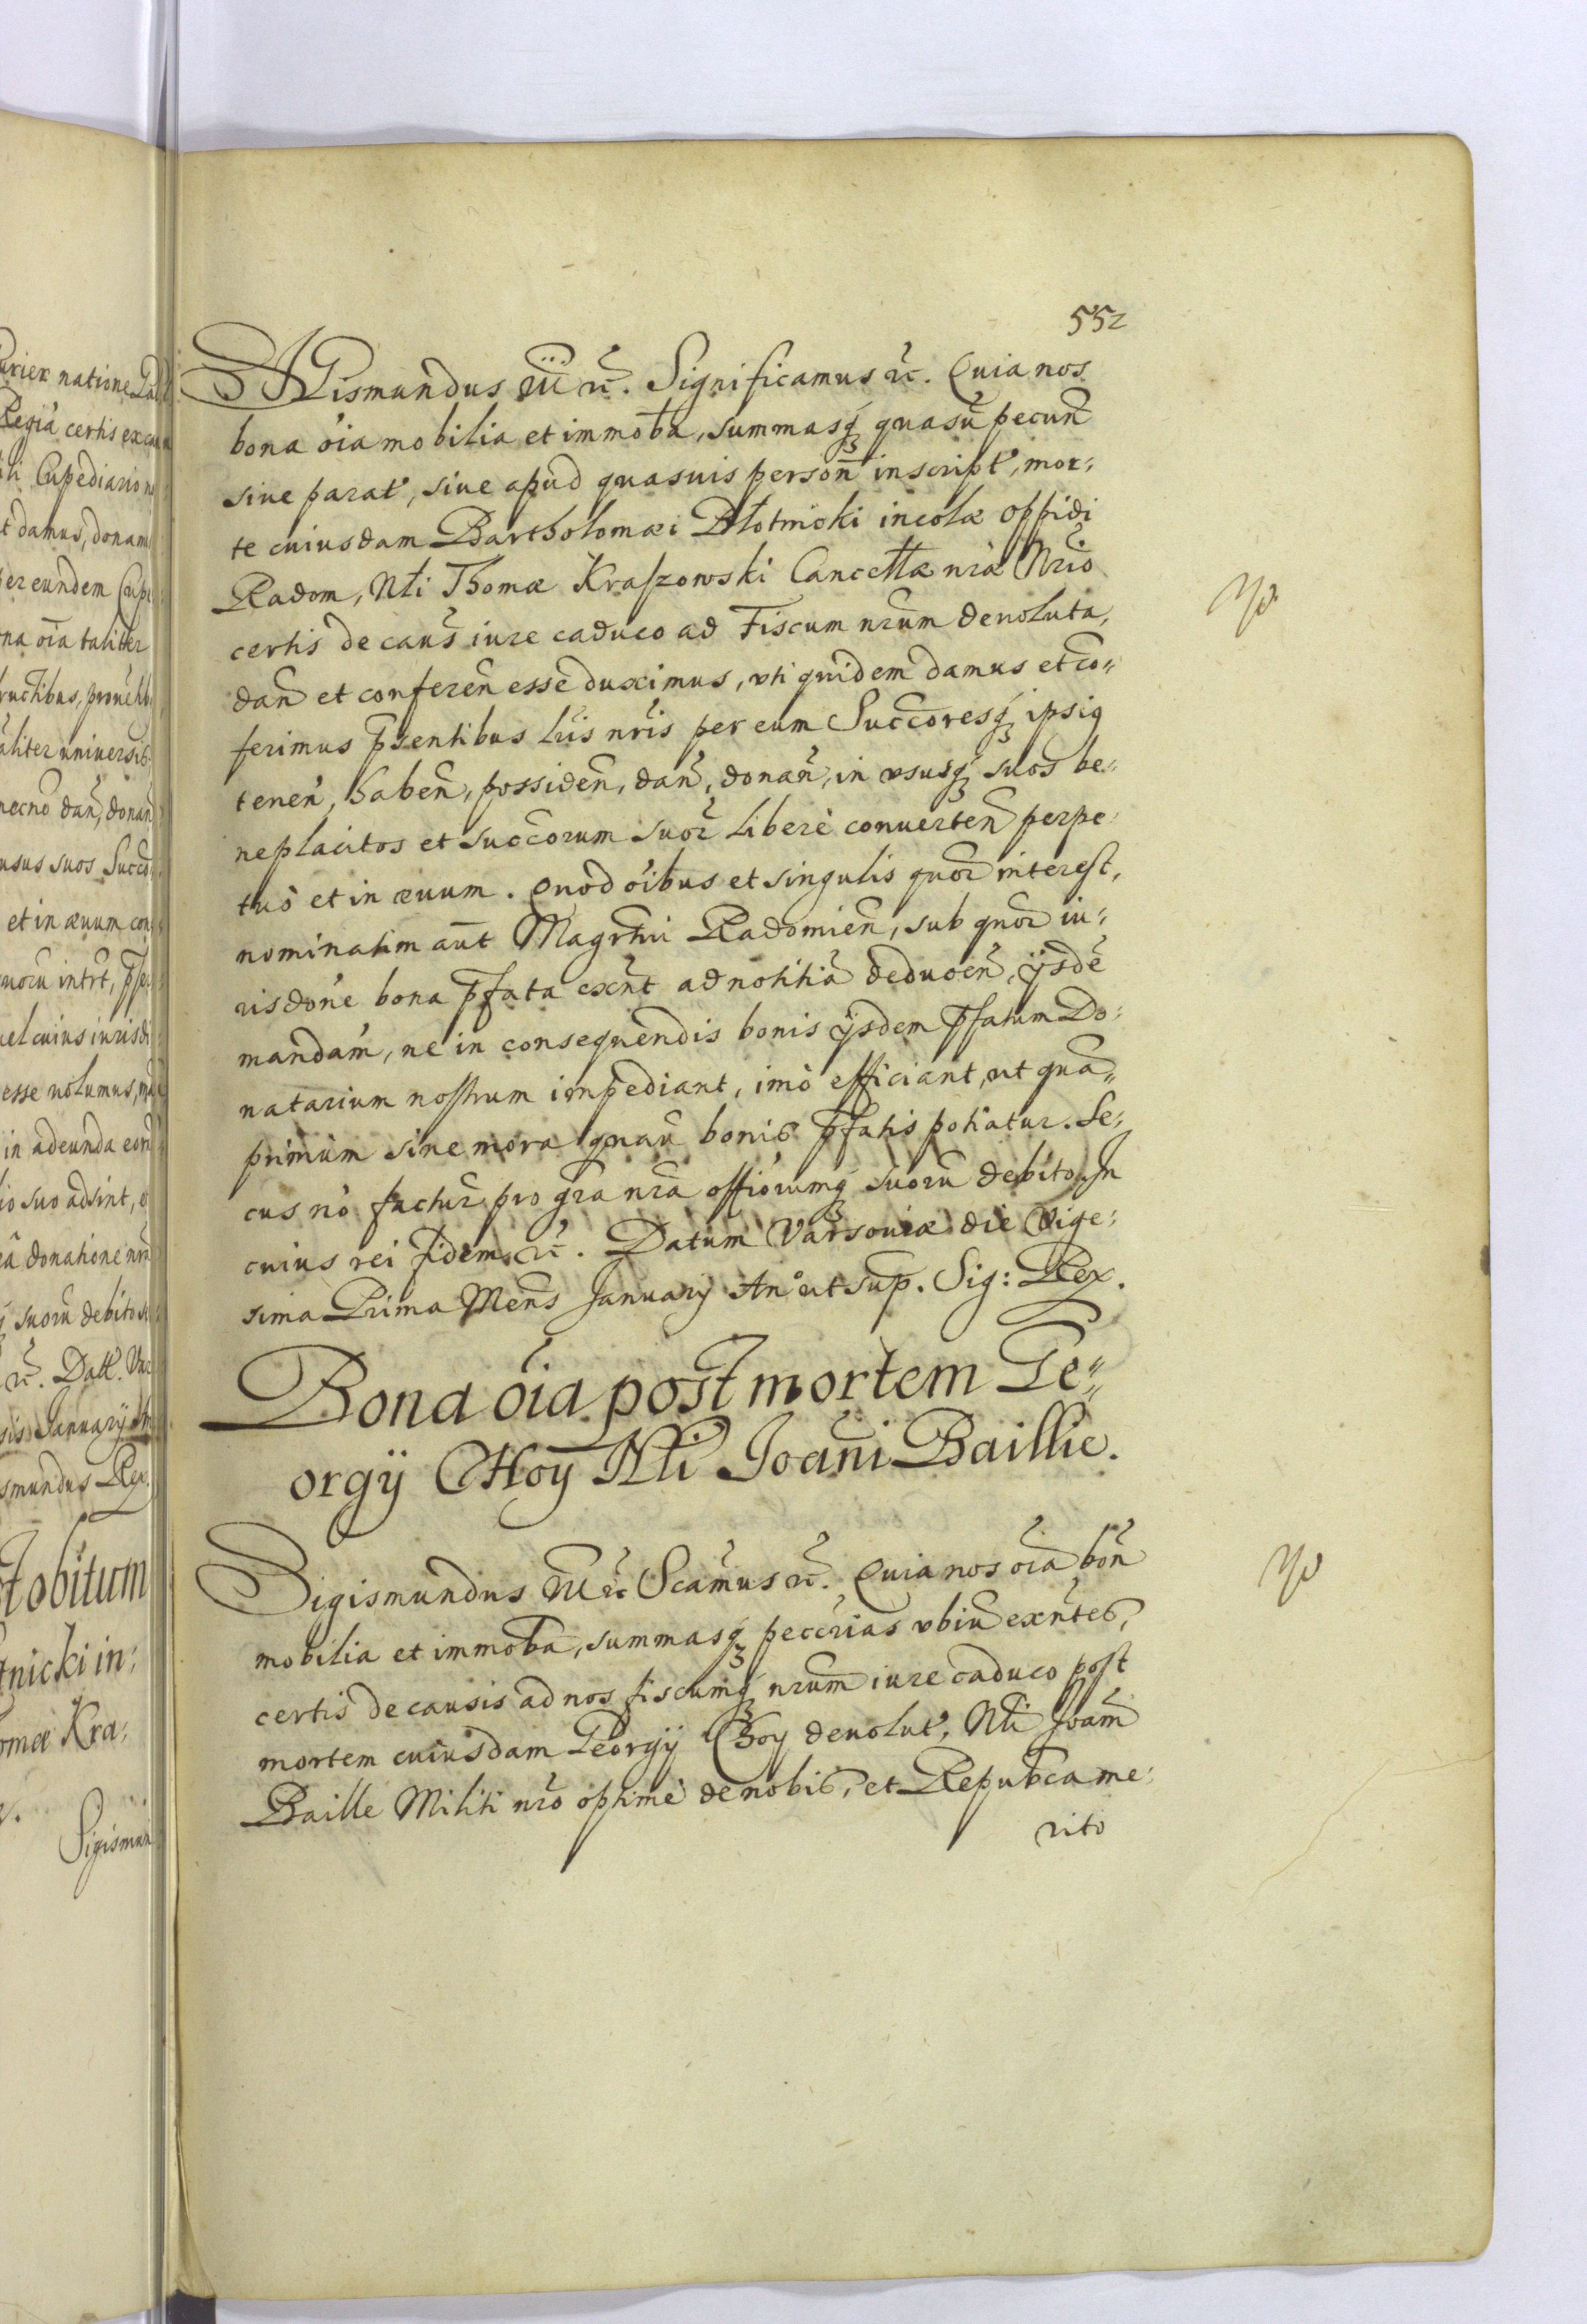 552
SIGismundus III etc. Significamus etc. Quia nos
bona oīa mobilia et immob̄a, summasq́ȝ quasū pecun̄
siue parat', siue apud quasuis person̄ inscript', mor:
te cuiusdam Bartholomæi Płotnicki incolæ oppidi
Radom, Nłi Thomæ Kraszowski Cancełłæ nr̄æ Nr̄io
certis de caus̄ iure caduco ad Fiscum nr̄um deuoluta,
dan̄ et conferen̄ esse duximus, vti quidem damus et cō„
ferimus p̄sentibus lr̄is nr̄is per eum Succōresq́ȝ ipsiq
tenen̄, haben̄, possiden̄, dan̄, donan̄, in vsusq́ȝ suos be:
neplacitos et succōrum suor̄ liberè conuerten̄ perpe:
tuò et in æuum. Quod oībus et singulis quor̄ interest,
nominatim aūt Magr̄tui Radomien̄, sub quor̄ iu:
risdōne bona p̄fata exn̄t ad notitiā deducen̄, ijsdē
mandam̄, ne in consequendis bonis ijsdem p̄fatum Do:
natarium nostrum impediant, imò efficiant, ut quā„
primùm sine mora quau̅ bonis p̄fatis potiatur. Se:
cus nō factur̄ pro gr̄a nr̄a offiorumq́ȝ suorū debito. In
cuius rei fidem etc. Datum Varsouiæ die Vige:
sima Prima Mens̄ January An̊ ut sup. Sig: Rex.
Bona oīa post mortem Ge„
orgÿ CHoy Nłi Joan̄i Baillie.
Sigismundus III etc Sc̄amus etc. Quia nos oīa bon̄
mobilia et immob̄a, summasq́ȝ pec̄rias vbiu̅ exn̄tes,
certis de causis ad nos fiscumq́ȝ nr̄um iure caduco post
mortem cuiusdam Georgÿ Choy deuolut', Nłi Joan̄i
Baille Militi nr̄o optimè de nobis, et Repub̄ca me:
rito